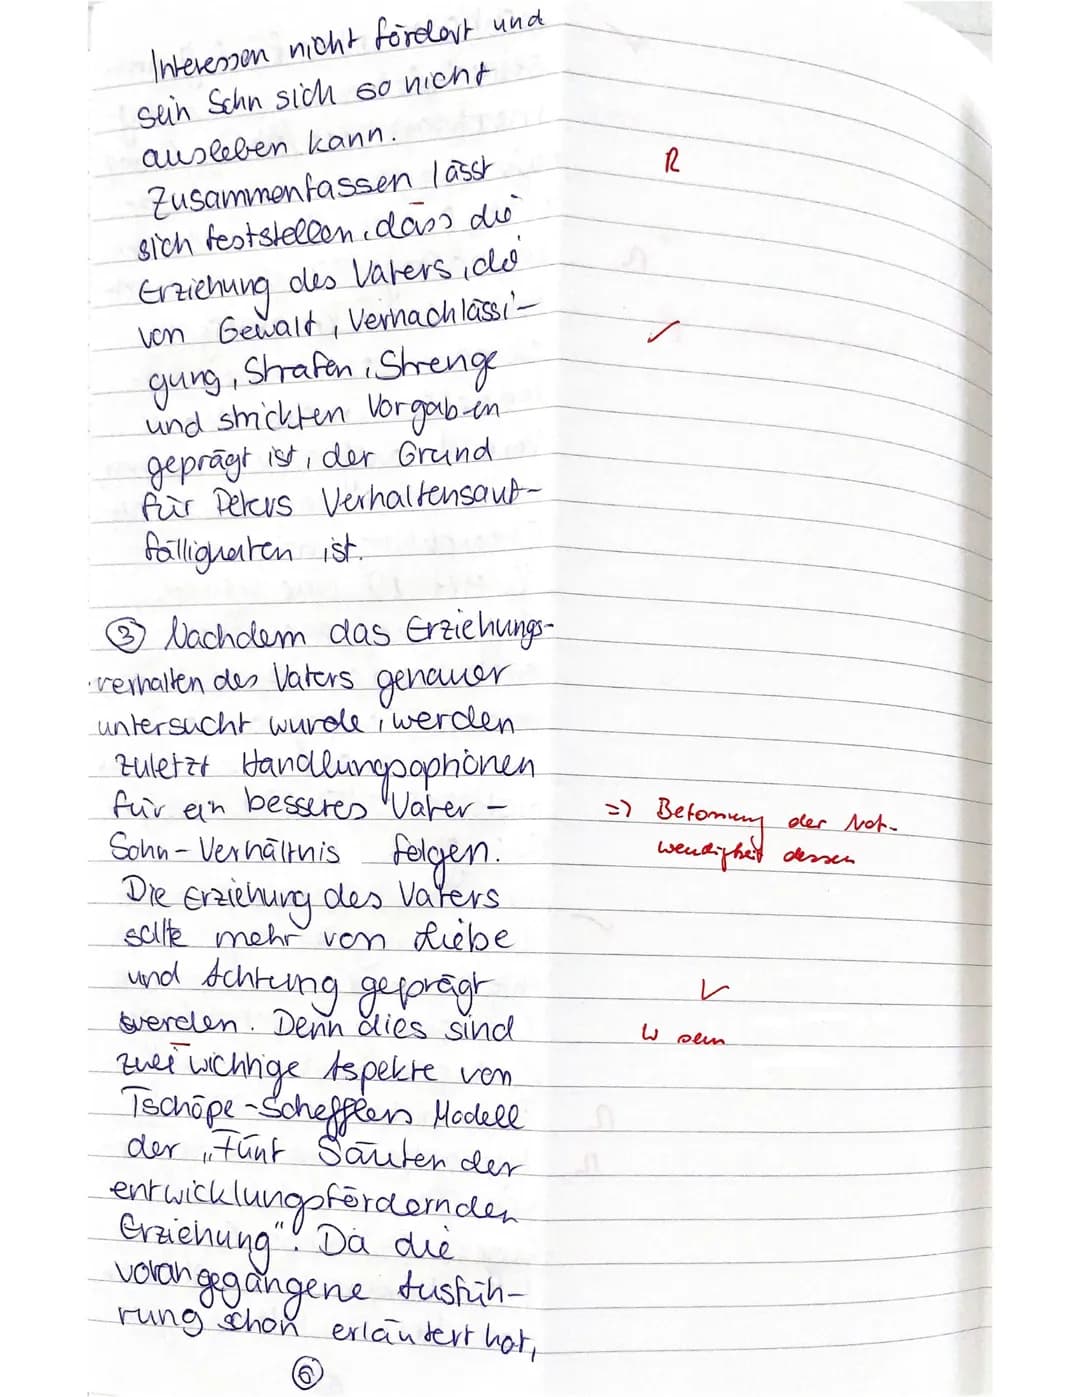 Interessen nicht fördert und
sein Sohn sich so nicht
ausleben kann.
Zusammenfassen lässt
R
sich feststellen, dass die
Erziehung des Vaters, die
von Gewalt, Vernachlässi-
✓
gung, Strafen, Strenge
und strickten Vorgaben
geprägt ist, der Grund
für Peters Verhaltensauf-
fälligkeiten ist.
③ Nachdem das Erziehungs-
verhalten des Vaters genauer
untersucht wurde, werden
zuletzt Handlungsoptionen
für ein besseres Vater-
=> Betonung der Not-
Sohn-Verhältnis folgen.
wendigkeit dessen
Die Erziehung des Vaters
sollte mehr von Liebe
und Achtung geprägt
✓
werden. Denn dies sind
W sein
zwei wichtige Aspekte von
Tschöpe-Schefflers Modell
der „Fünf Säulen der
entwicklungsfördernden
Erziehung". Da die
vorangegangene Ausfüh-
rung schon erläutert hat,
⑥